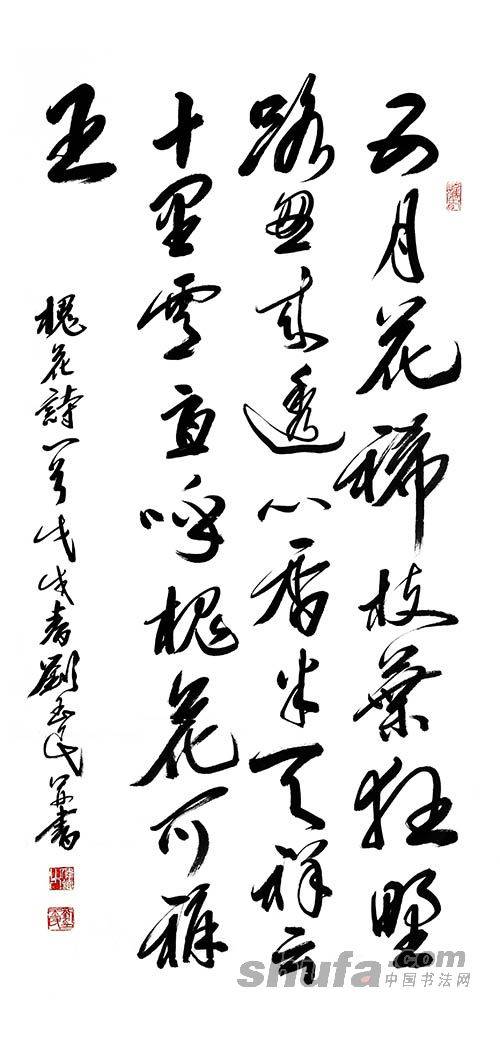 五月花稀枝葉狂野
路忽来透心香半天祥云
十里雪直呼槐花可称
王
槐花詩一首戊戌春劉并書
shufa.com
中国书法网